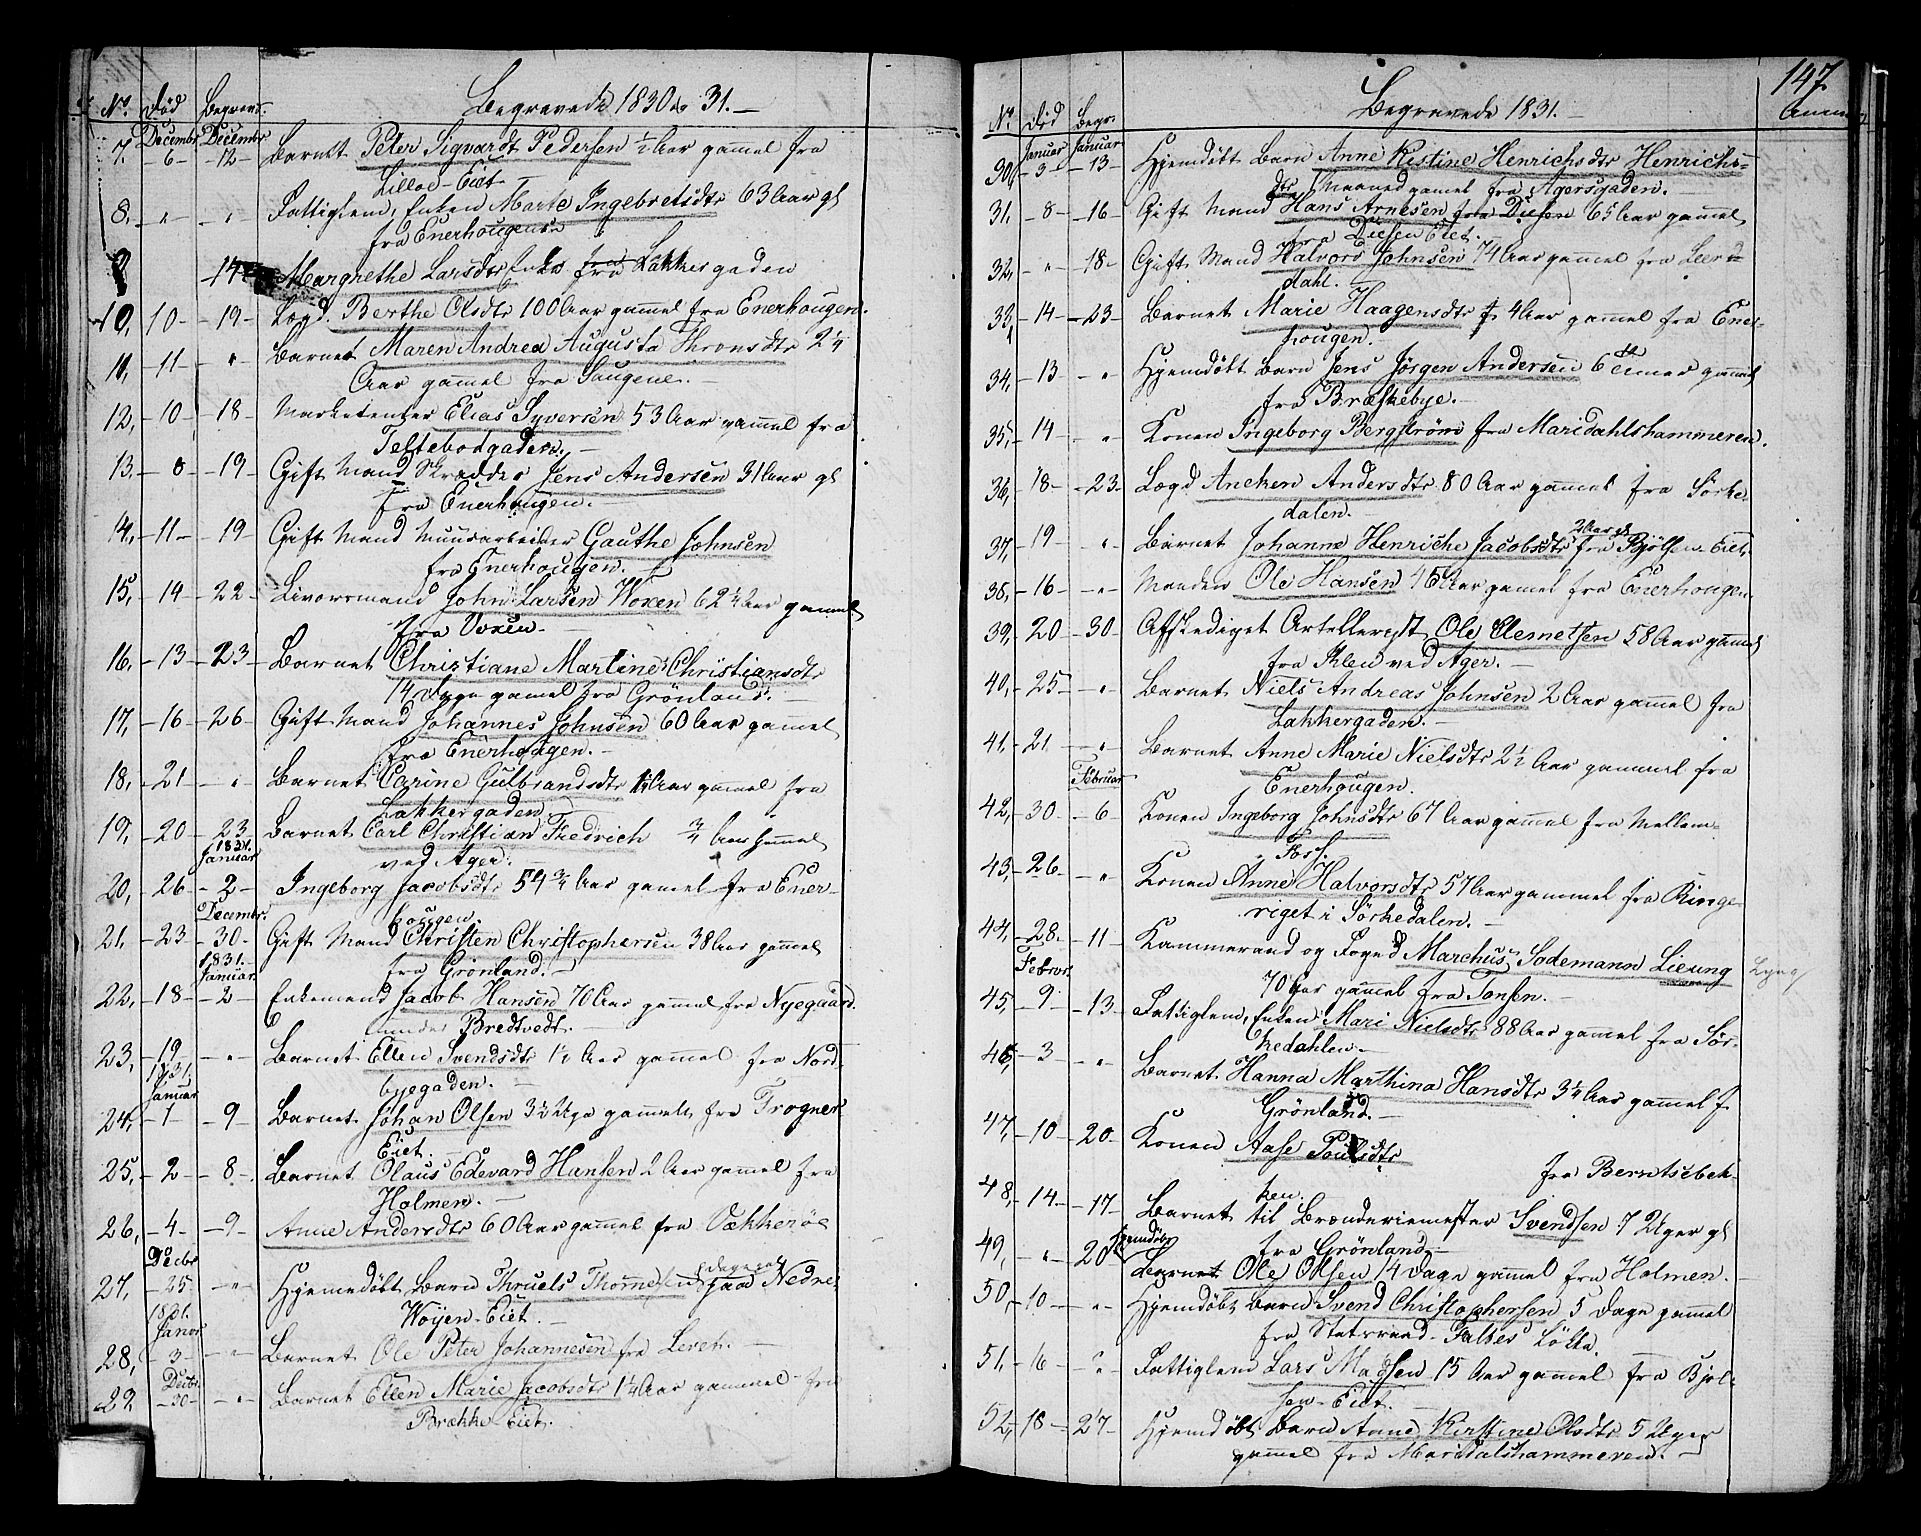 Begravede 1830 & 31.
No. Død Begrav.
Decembr Decembr
7. 6 12 Barnet Peter Sigvardt Pedersen ½ Aar gamel fra
Lilloe-Eiet
8. " " Fattiglem, Enken Marte Ingebretsdtr 63 Aar gl
fra Enerhougen
9 14 Margrethe Larsdtr Enke fra Lakkergaden
10, 10 19 Lægd. Berthe Olsdtr 100 Aar gamel fra Enerhougen.
11, 11 " Barnet Maren Andrea Augusta Thronsdtr 2¼
Aar gamel fra Saugene.
12, 10 18 Marketenter Elias Syversen 53 Aar gammel fra
Teltebodgaden.
13 8 19 Gift Mand Skrædder Jens Andersen 31 Aar gl
fra Enerhougen.
14, 11 19 Gift Mand Muurarbeider Gauthe Johnsen
fra Enerhougen.
15, 14 22 Livorsmand John Larsen Woxen 62¼ Aar gammel
fra Voxen
16. 13 23 Barnet Christiane Martine Christiansdtr
14 Dage gamel fra Grönland.
17, 16 26 Gift Mand Johannes Johnsen 60 Aar gammel
fra Enerhougen.
18, 21 " Barnet Carine Gulbrandsdtr 1½ Aar gamel fra
Lakkergaden
19, 20 23 Barnet Carl Christian Fredrich ¾ Aar gammel
1831. Januar
ved Ager.
20, 26 2 Ingeborg Jacobsdtr 54¾ Aar gamel fra Ener-
Decembr. hougen.
21, 23 30 Gift Mand Christen Christophersen 38 Aar gammel
1831. Januar fra Grönland.
22, 18 2 Enkemand Jacob Hansen 70 Aar gamel fra Nyegaard
under Bredtvedt.
23, 19 " Barnet Ellen Svendsdtr 1½ Aar gammel fra Nord-
1831. Januar byegaden.
24, 1 9 Barnet Johan Olsen 3½ Uge gammel fra Frogner
Eiet.
25, 2 8 Barnet Olaus Edevard Hansen 2 Aar gamel fra
Holmen.
26, 4 9 Anne Andersdtr 60 Aar gammel fra Vækkeröe
Decbr
27, 25 " Hjemedøbt Barn Thruels Thornesen dage gl fra Nedre
1831. Janor Wøyen-Eiet.
28, 3 " Barnet Ole Peter Johannesen fra Leret.
Decbr
29 30 " Barnet Ellen Marie Jacobsdtr 1¼ Aar gammel fra
Brække Eiet.
147
Begravede 1831.
No. Død Begr. Anm
Januar Januar
30, 3 13 Hjemdøbt Barn Anne Kistine Henrichsdtr Henrichs-
dtr 1 Maaned gamel fra Agersgaden.
31, 8 16 Gift Mand Hans Arnesen fra Diesen 65 Aar gammel
fra Diesen Eiet.
32, " 18 Gift Mand Halvors Johnsen 74 Aar gammel fra Leer-
dahl.
33, 14 23 Barnet Marie Haagensdtr 4 Aar gammel fra Ener-
hougen.
34, 13 " Hjemdøbt Barn Jens Jørgen Andersen 6 Timer gammel
fra Bræskebye.
35, 14 " Konen Ingeborg Bergström fra Maridahlshammeren.
36, 18 23 Lægd Anchen Andersdtr 80 Aar gammel fra Sørke-
dalen.
37, 19 " Barnet Johanne Henriche Jacobsdtr 2 Aar gl fra Bjølsen-Eiet
38, 16 " Manden Ole Hansen 45 Aar gamel fra Enerhougen
39, 20 30 Afskediget Artellerist Ole Clemetsen 58 Aar gammel
fra Ihlen ved Ager.
40, 25 " Barnet Niels Andreas Johnsen 2 Aar gammel fra
Lakkergaden.
41, 21 " Barnet Anne Marie Nielsdtr 2½ Aar gammel fra
Februar Enerhougen.
42, 30 6 Konen Ingeborg Johnsdtr 67 Aar gammel fra Mellem-
Fos.
43, 26 " Konen Anne Halvorsdtr 57 Aar gammel fra Ringe-
riget i Sørkedalen.
44, 28. 11 Kammerraad og Foged Marchus Sodemann Lieung Lyng
Febrvr. 70 Aar gammel fra Tonsen.
45, 9 13 Fattiglem, Enken Mari Nielsdtr 88 Aar gammel fra Sør-
kedahlen
46, 3 " Barnet Hanna Marthina Hansdtr 3½ Aar gammel f
Grönland.
47, 10 20 Konen Aase Poulsdtr
fra Berntsebak-
ken.
48, 14 17 Barnet til Brænderiemester Svendsen 7 Uger gl
fra Grönland
49, " 20 Hjemdöbt Barnet Ole Olsen 14 Dage gammel fra Holmen.
50, 10 " Hjemdøbt Barn Svend Christophersen 5 Dage gamel
fra Statsraad Falbes Løkke.
51, 16 " Fattiglem Lars Madsen 15 Aar gammel fra Bjøl-
sen-Eiet.
52, 18 27 Hjemdøbt Barn Anne Kirstine Olsdtr 5 Uger
gammel fra Maridalshammeren.